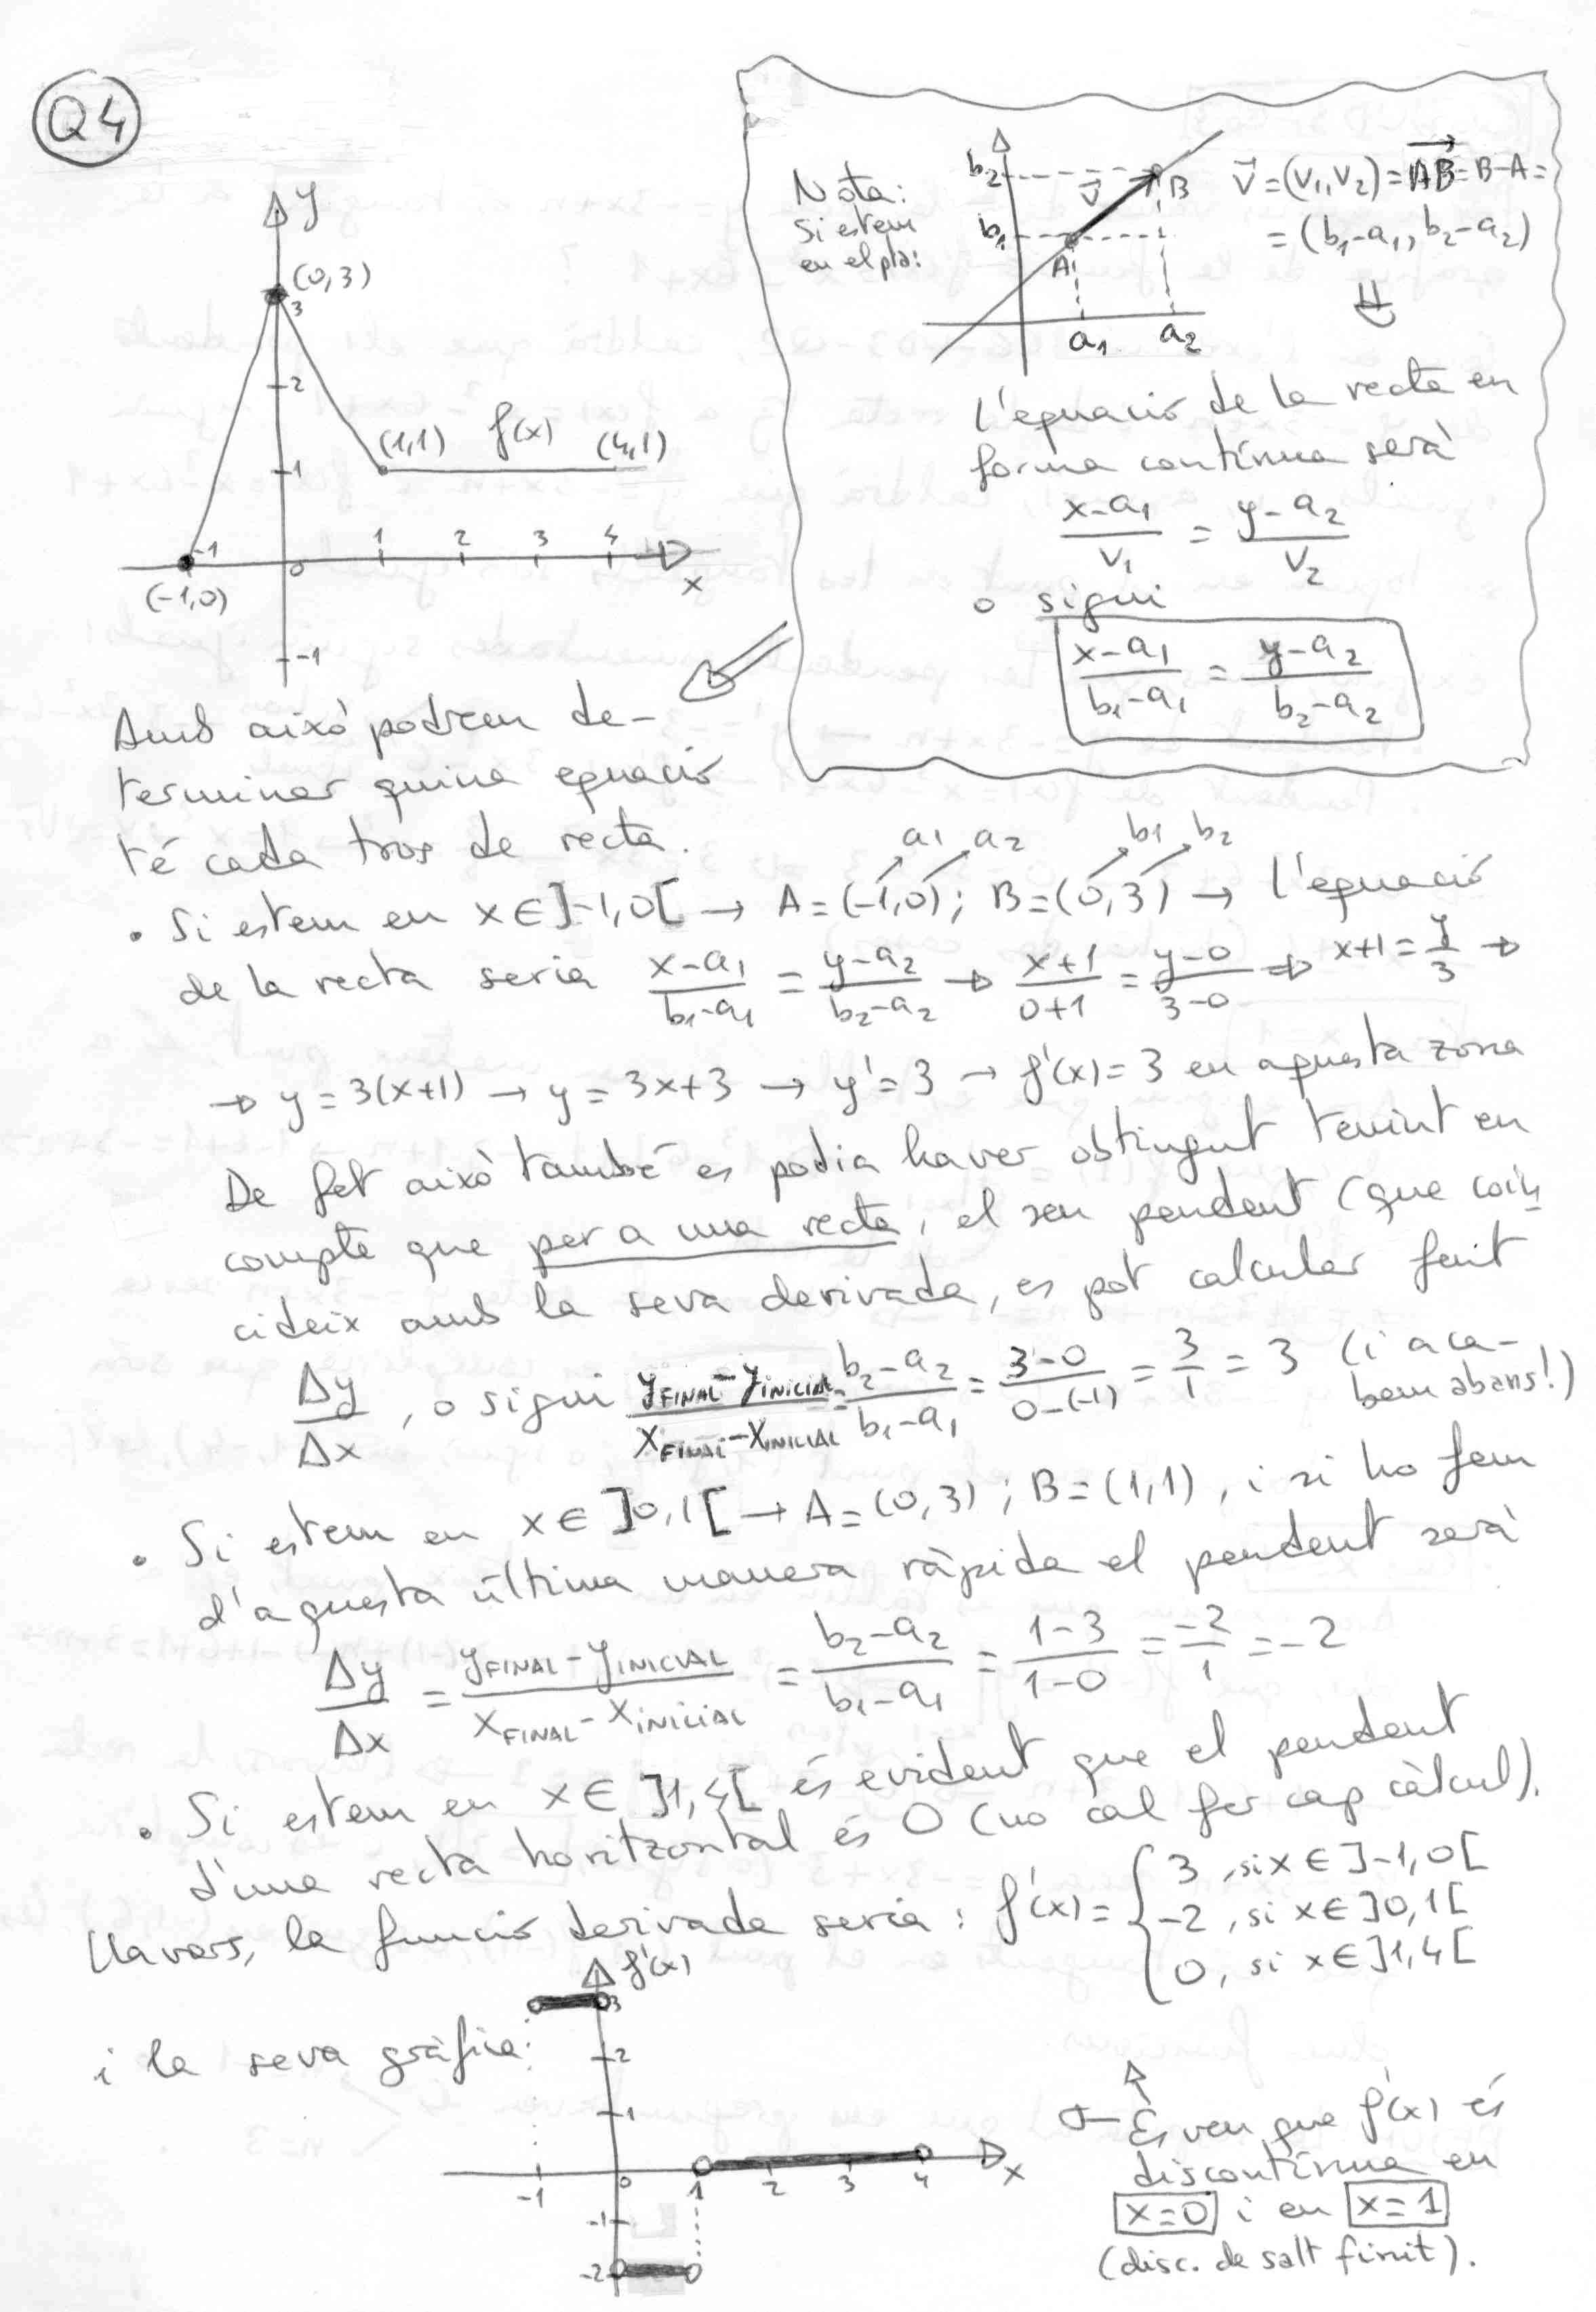 Q4
y
(0,3)
3
2
(1,1) f(x) (4,1)
1
-1 0 1 2 3 4
x
(-1,0)
-1
Nota:
Si estem
en el pla:
b₂ v⃗ B
b₁ A
a₁ a₂
v⃗=(v₁,v₂)=AB⃗=B-A=
=(b₁-a₁, b₂-a₂)
⇓
L'equació de la recta en
forma contínua serà
(x-a₁)/v₁ = (y-a₂)/v₂
o sigui
(x-a₁)/(b₁-a₁) = (y-a₂)/(b₂-a₂)
Amb això podrem de-
terminar quina equació
té cada tros de recta.
a₁ a₂ b₁ b₂
• Si estem en x∈]-1,0[ → A=(-1,0); B=(0,3) → l'equació
de la recta seria (x-a₁)/(b₁-a₁) = (y-a₂)/(b₂-a₂) → (x+1)/(0+1) = (y-0)/(3-0) → x+1 = y/3 →
→ y=3(x+1) → y=3x+3 → y'=3 → f'(x)=3 en aquesta zona
De fet això també es podia haver obtingut tenint en
compte que per a una recta, el seu pendent (que coin
cideix amb la seva derivada, es pot calcular fent
Δy/Δx, o sigui (yFINAL-yINICIAL)/(xFINAL-xINICIAL) = (b₂-a₂)/(b₁-a₁) = (3-0)/(0-(-1)) = 3/1 = 3 (i aca-
bem abans!)
• Si estem en x∈]0,1[ → A=(0,3); B=(1,1), i si ho fem
d'aquesta última manera ràpida el pendent serà
Δy/Δx = (yFINAL-yINICIAL)/(xFINAL-xINICIAL) = (b₂-a₂)/(b₁-a₁) = (1-3)/(1-0) = -2/1 = -2
• Si estem en x∈]1,4[ és evident que el pendent
d'una recta horitzontal és 0 (no cal fer cap càlcul).
Llavors, la funció derivada seria: f'(x)= { 3, si x∈]-1,0[
-2, si x∈]0,1[
0, si x∈]1,4[
i la seva gràfica:
f'(x)
3
2
1
-1 0 1 2 3 4 x
-1
-2
Es veu que f'(x) és
discontínua en
x=0 i en x=1
(disc. de salt finit).